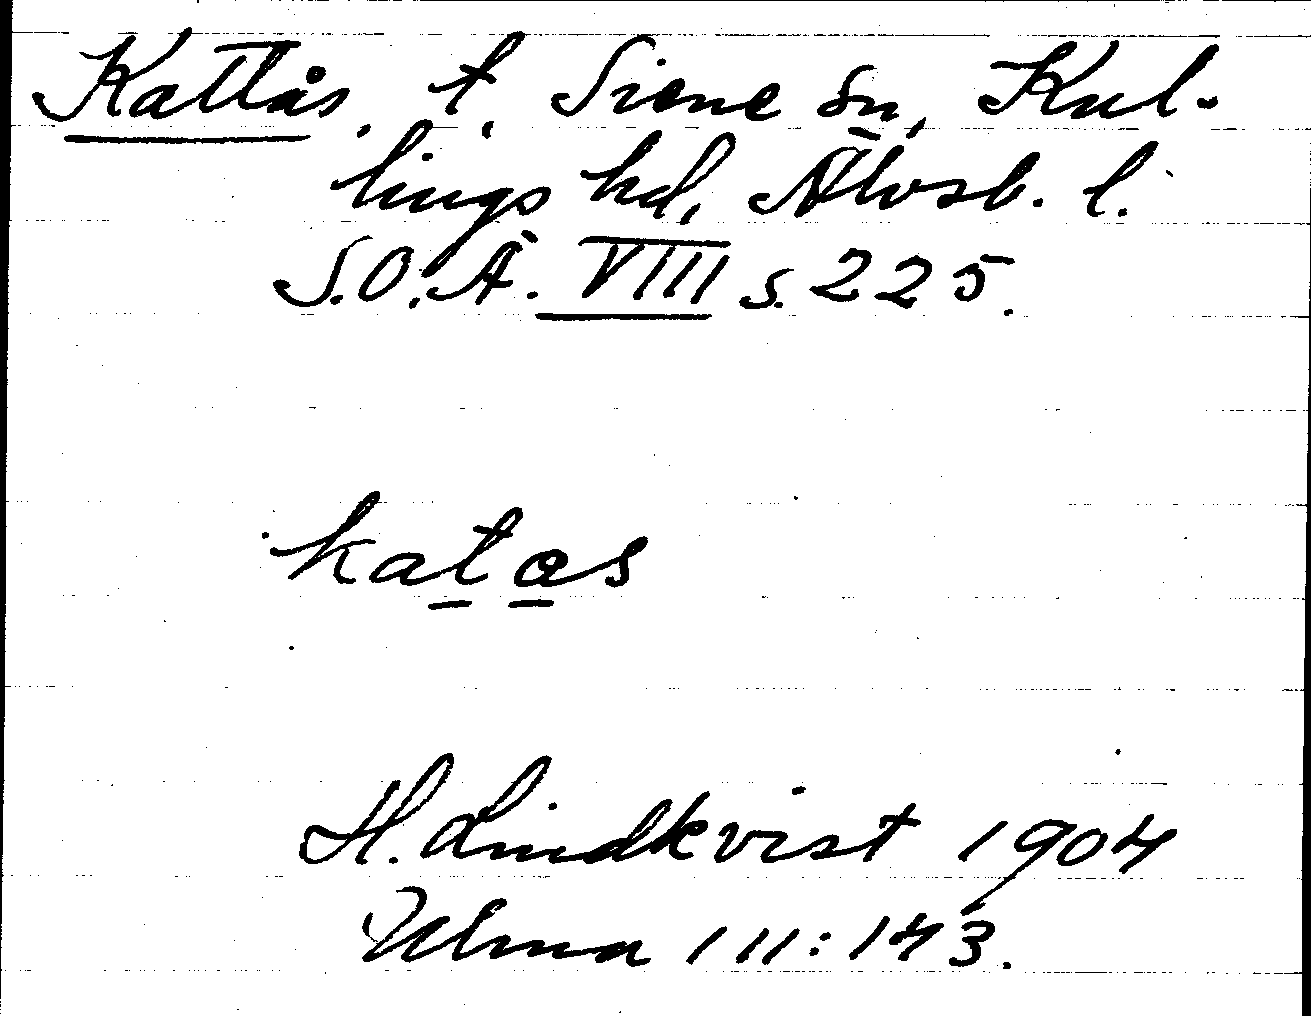 Kattås, t. Siene sn, Kul-
lings hd, Älvsb. l.
S.O.Ä. VIII s. 225.
katas
H. Lindkvist 1904
Ulma 111:143.